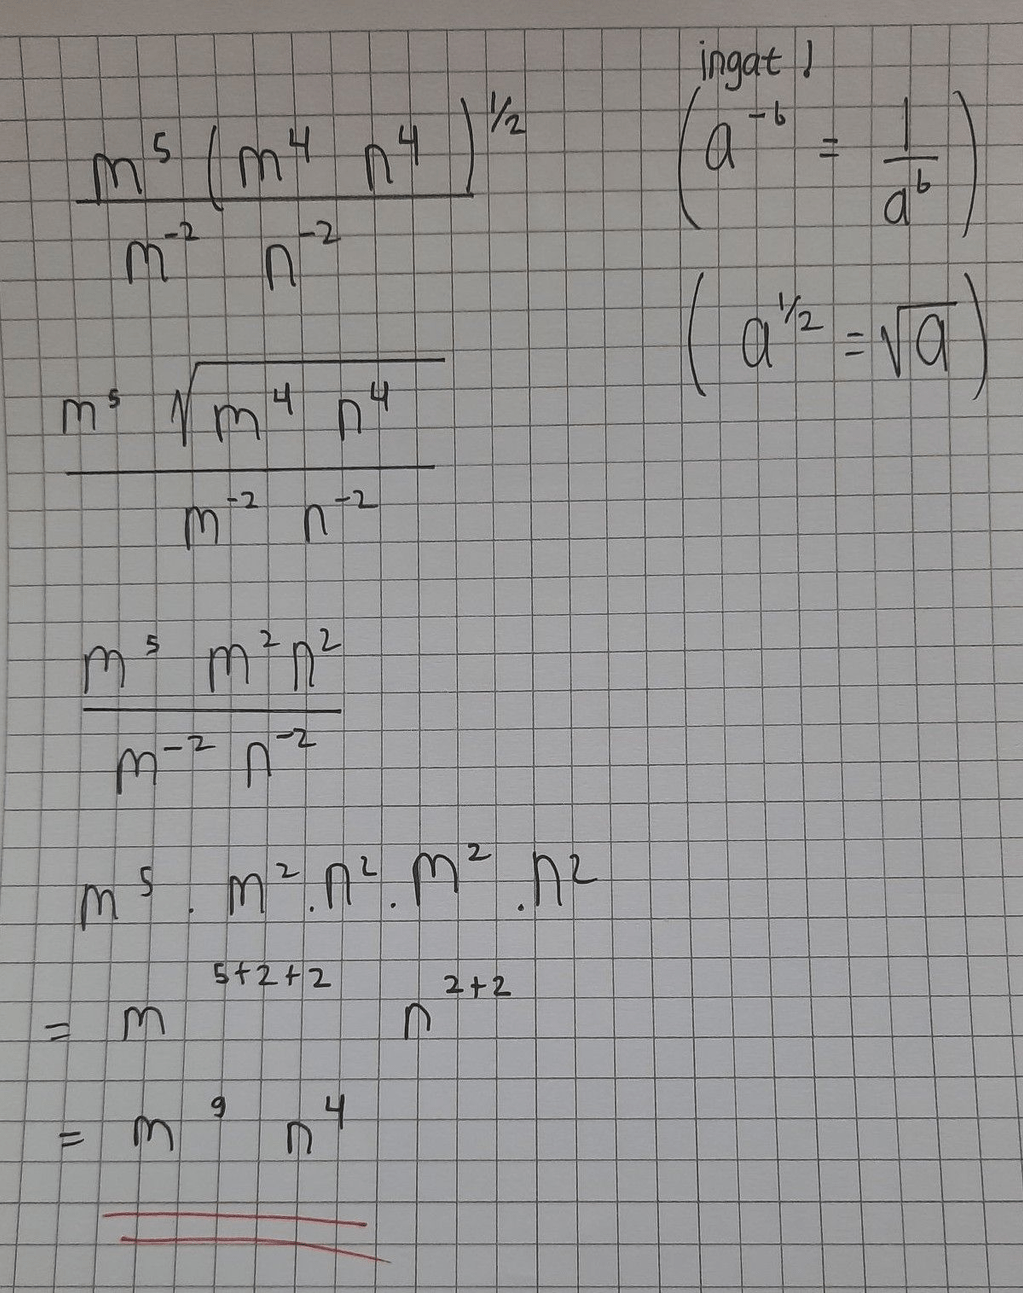 m⁵ (m⁴ n⁴)^½
m⁻² n⁻²
ingat !
(a⁻ᵇ = 1/aᵇ)
(a^½ = √a)
m⁵ √(m⁴ n⁴)
m⁻² n⁻²
m⁵ m² n²
m⁻² n⁻²
m⁵ . m² . n² . m² . n²
= m⁵⁺²⁺² n²⁺²
= m⁹ n⁴